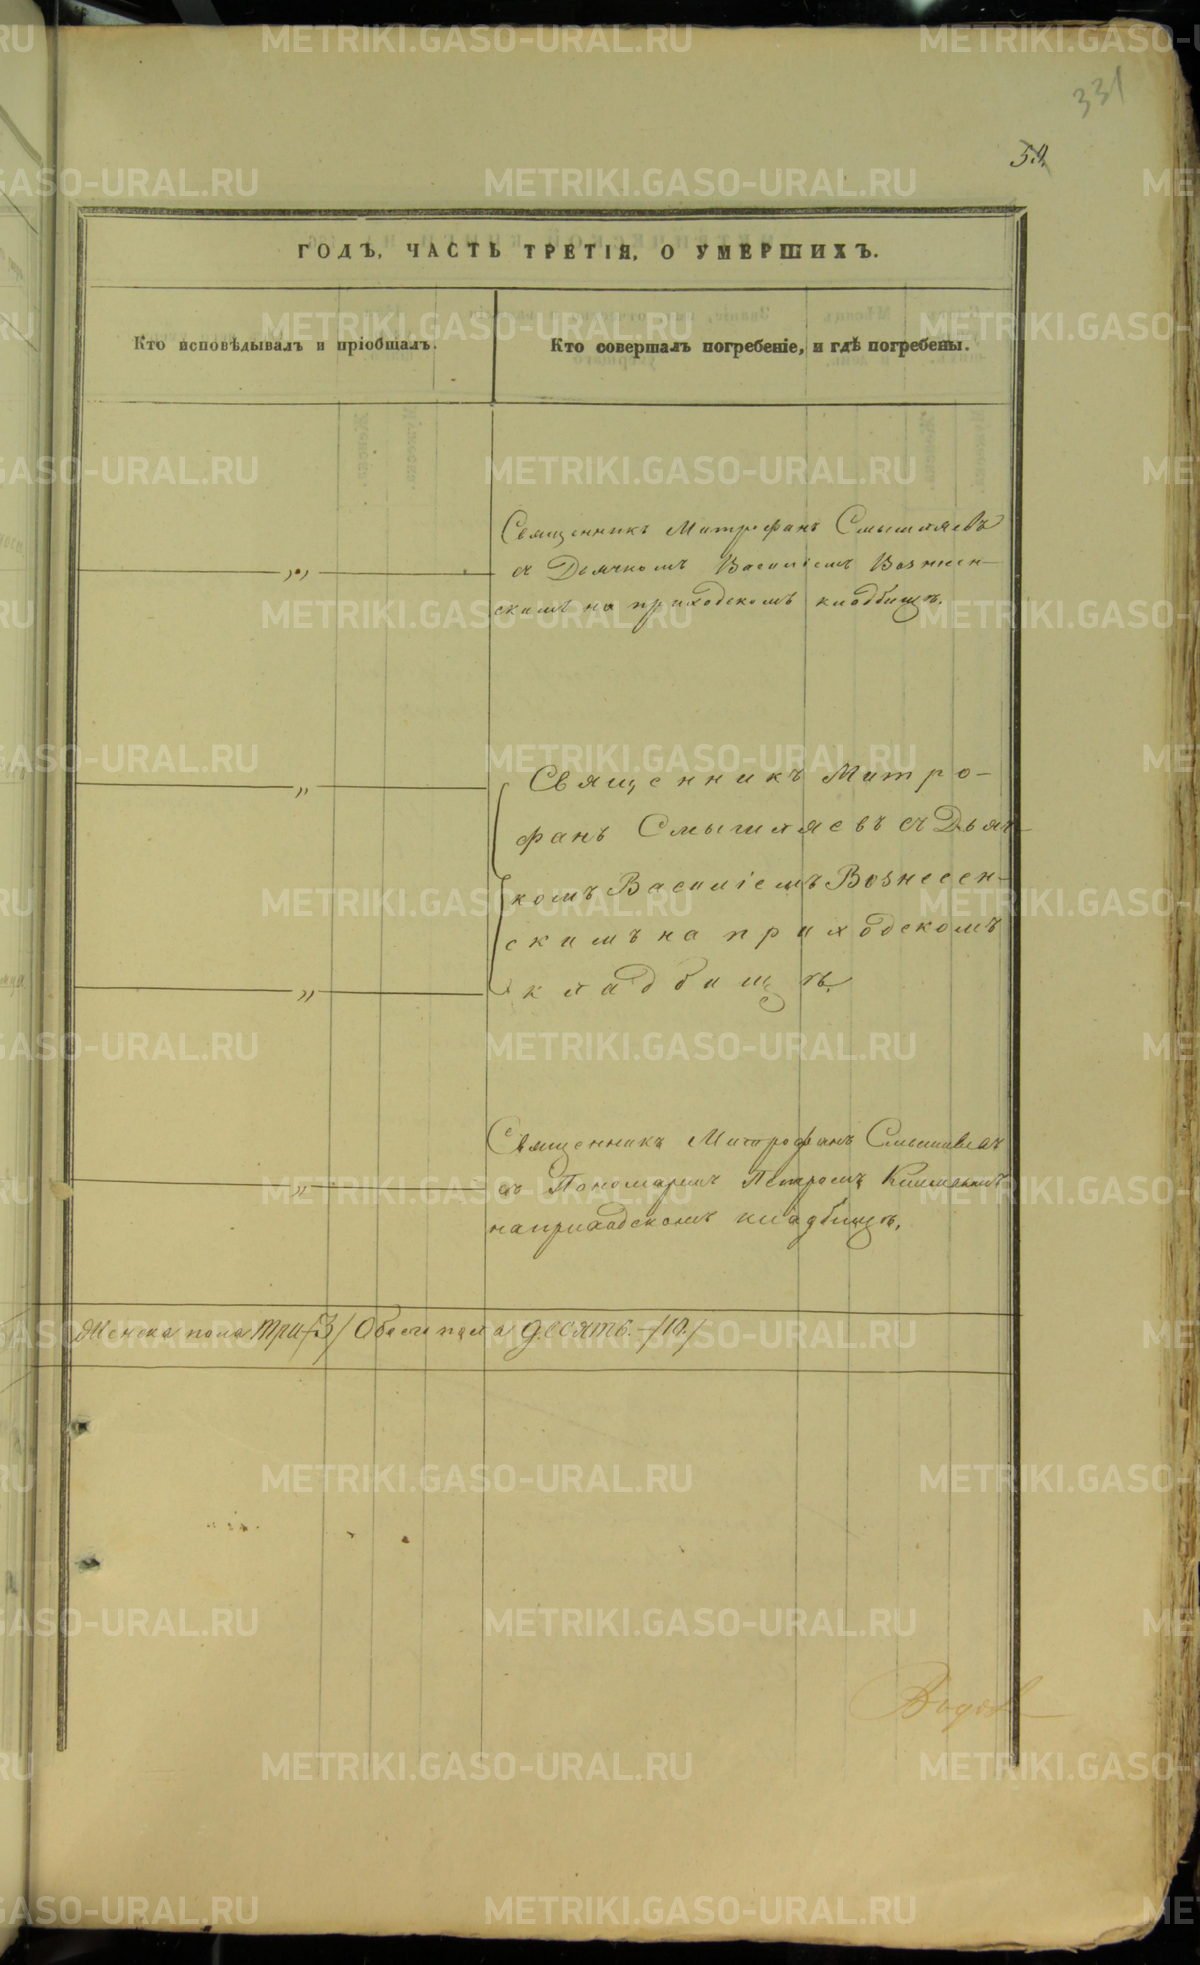 331
59.
ГОДЪ, ЧАСТЬ ТРЕТІЯ, О УМЕРШИХЪ.
Кто исповѣдывалъ и пріобщалъ.
Кто совершалъ погребеніе, и гдѣ погребены.
Священникъ Митрофанъ Смышляевъ
съ Дьячкомъ Василіемъ Вознесен-
скимъ на приходскомъ кладбищѣ.
Священникъ Митро-
фанъ Смышляевъ съ Дьяч-
комъ Василіемъ Вознесен-
скимъ на приходскомъ
кладбищѣ.
Священникъ Митрофанъ Смышляевъ
съ Пономаремъ Петромъ
на приходскомъ кладбищѣ.
Женска пола три /3/ Обоего пола десять. /10./
METRIKI.GASO-URAL.RU